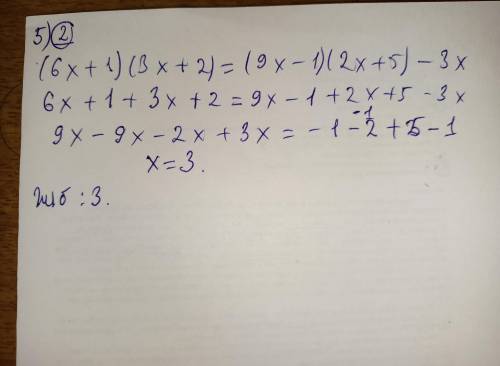 5) 2
(6x+1)(3x+2)=(9x-1)(2x+5)-3x
6x+1+3x+2=9x-1+2x+5-3x
9x-9x-2x+3x=-1-2+5-1
x=3.
:3.